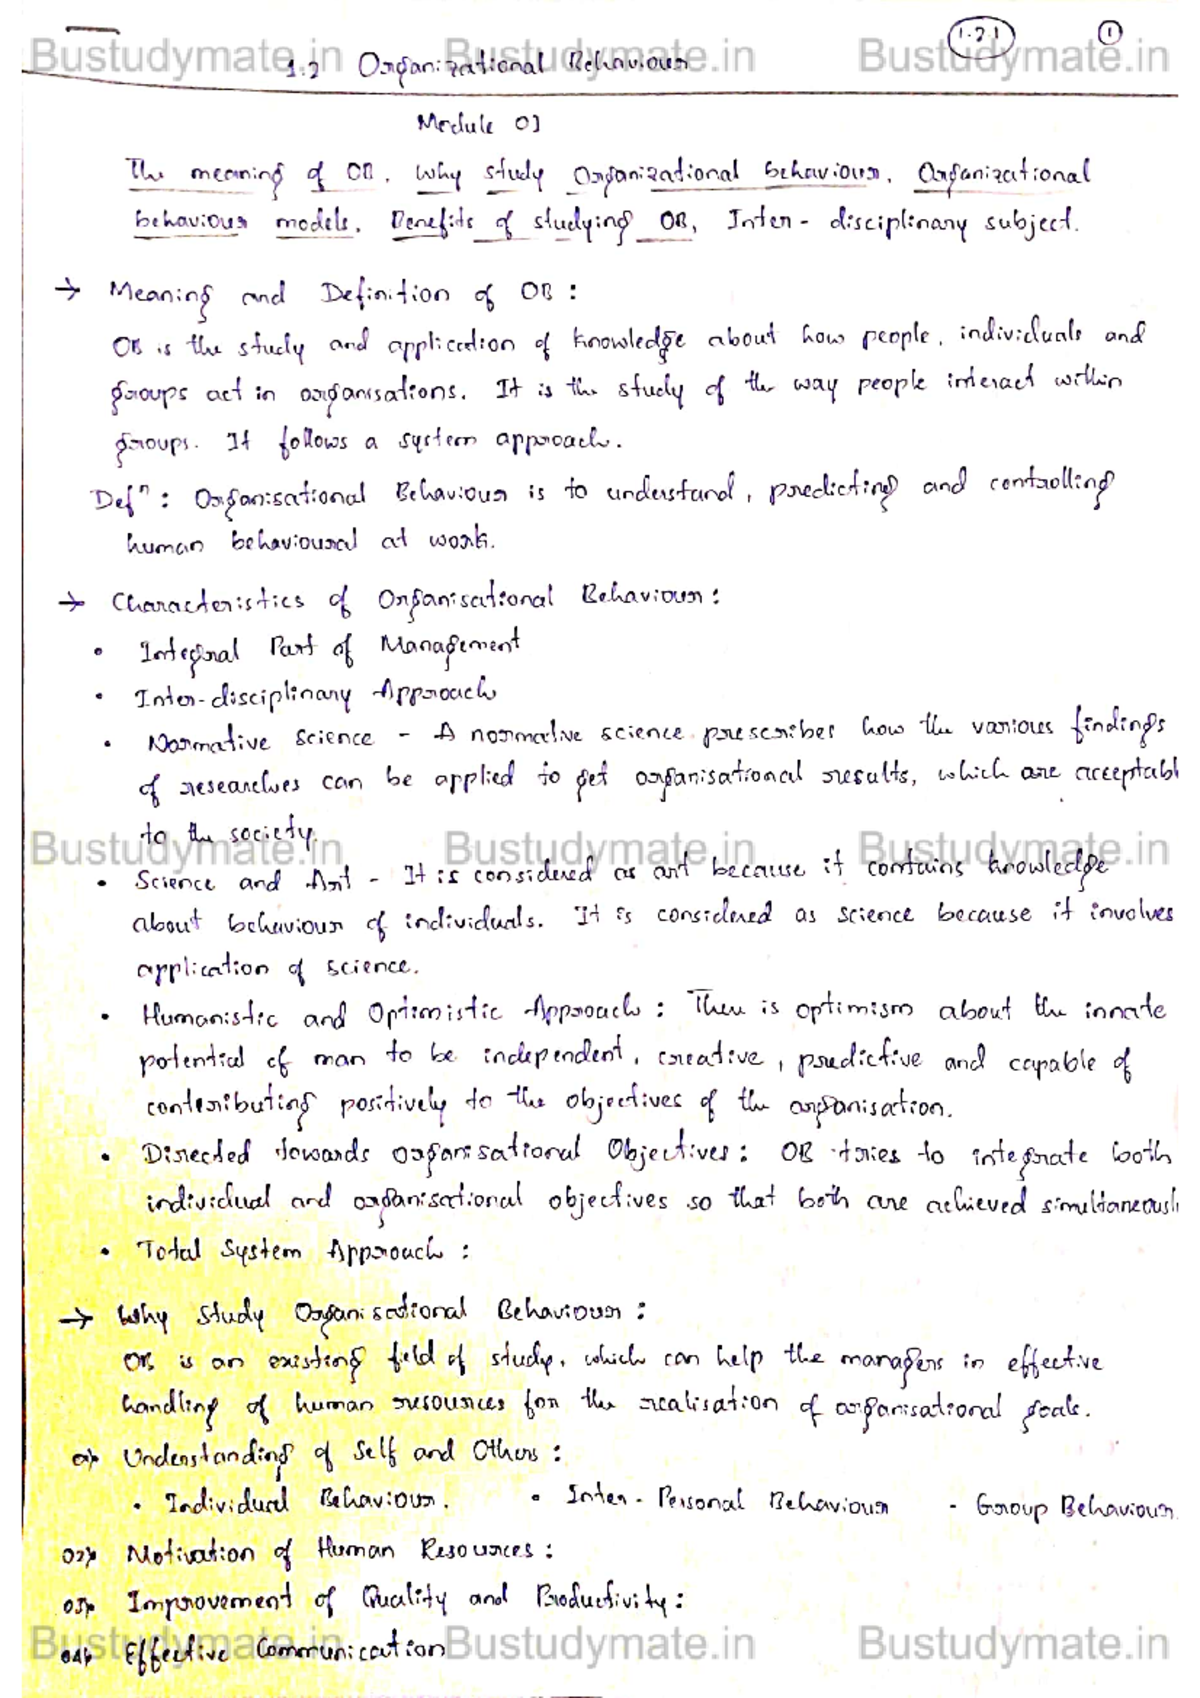 1.2.1 1
Bustudymate.in Bustudymate.in Bustudymate.in
1.2 Organizational Behaviour
Module 01
The meaning of OB, Why study Organizational behaviour, Organizational
behaviour models, Benefits of studying OB, Inter-disciplinary subject.
→ Meaning and Definition of OB :
OB is the study and application of knowledge about how people, individuals and
groups act in organisations. It is the study of the way people interact within
groups. It follows a system approach.
Defⁿ : Organisational Behaviour is to understand, predicting and controlling
human behavioural at work.
→ Characteristics of Organisational Behaviour :
• Integral Part of Management
• Inter-disciplinary Approach
• Normative Science - A normative science prescribes how the various findings
of researches can be applied to get organisational results, which are acceptabl
to the society.
Bustudymate.in Bustudymate.in Bustudymate.in
• Science and Art - It is considered as art because it contains knowledge
about behaviour of individuals. It is considered as science because it involves
application of science.
• Humanistic and Optimistic Approach : There is optimism about the innate
potential of man to be independent, creative, predictive and capable of
contributing positively to the objectives of the organisation.
• Directed towards organisational Objectives : OB tries to integrate both
individual and organisational objectives so that both are achieved simultaneousl
• Total System Approach :
→ Why Study Organisational Behaviour :
OB is an existing field of study, which can help the managers in effective
handling of human resources for the realisation of organisational goals.
01> Understanding of Self and Others :
• Individual Behaviour. • Inter-Personal Behaviour - Group Behaviour
02> Motivation of Human Resources :
03> Improvement of Quality and Productivity :
04> Effective Communication
Bustudymate.in Bustudymate.in Bustudymate.in